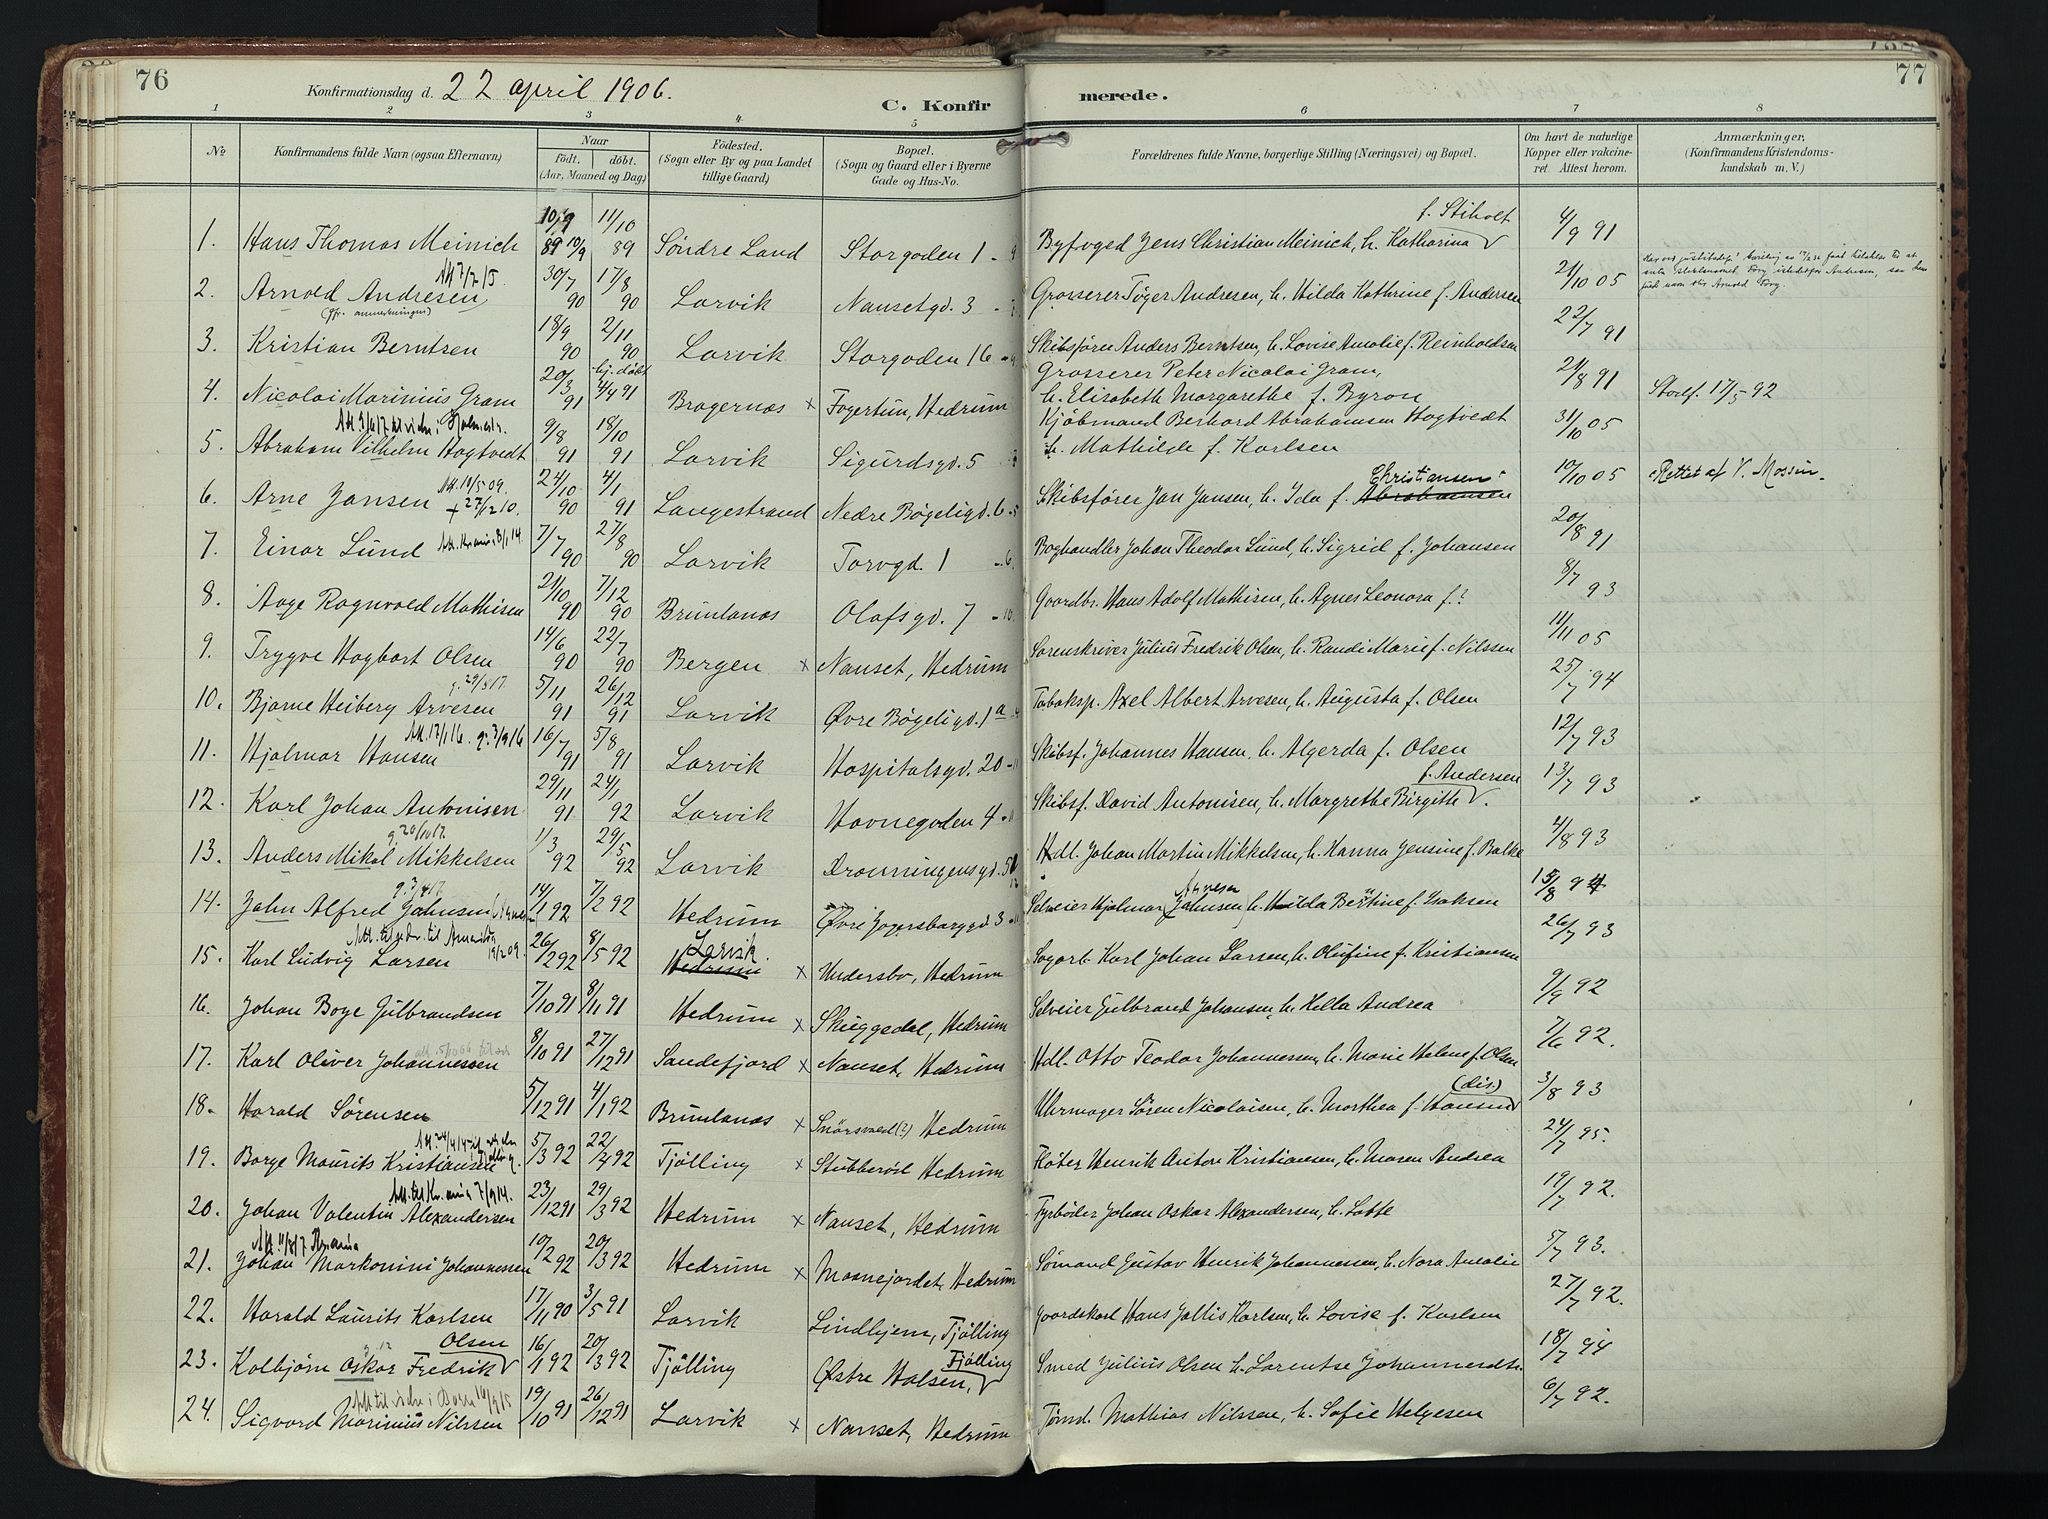 76
Konfirmationsdag d. 22 april 1906.
C. Konfir
merede.
77
1 2 3 4 5 6 7 8
No
Konfirmandens fulde Navn (ogsaa Efternavn)
Naar
født. døbt.
(Aar, Maaned og Dag)
Fødested.
(Sogn eller By og paa Landet
tillige Gaard)
Bopæl.
(Sogn og Gaard eller i Byerne
Gade og Hus-No.
Forældrenes fulde Navne, borgerlige Stilling (Næringsvei) og Bopæl.
Om havt de naturlige
Kopper eller vakcine-
ret. Attest herom.
Anmærkninger,
(Konfirmandens Kristendoms-
kundskab m. V.)
1. Hans Thomas Meinich 10/9 89 10/9 11/10 89 Søndre Land Storgaden 1 Byfoged Jens Christian Meinich, h. Katharina f. Stiholt 4/9 91
2. Arnold Andresen (jfr. anmerkningen) 30/7 90 17/8 90 Larvik Nansetgd. 3 Grosserer Töger Andresen, h. Hilda Kathrine f. Andersen 21/10 05
3. Kristian Berntsen 18/9 90 2/11 90 Larvik Storgaden 16 Skibsfører Anders Berntsen, h. Lovise Amalie f. Reinholdsen 22/7 91
4. Nicolai Marinius Gram 20/3 91 hj. døbt 4/4 91 Bragernæs x Fagertun, Hedrum Grosserer Peter Nicolai Gram,
h. Elisabeth Margarethe f. Byron 21/8 91 Stadf. 17/5 92
5. Abraham Vilhelm Hogtvedt 9/8 91 18/10 91 Larvik Sigurdsgd. 5 Kjøbmand Berhard Abrahamsen Hogtvedt
h. Mathilde f. Karlsen 31/10 05
6. Arne Jansen Att. 14/5 09. + 27/12 10. 24/10 90 4/1 91 Langestrand Nedre Bøgeligd. 6 Skibsfører Jan Jansen, h. Ida f. Abrahamsen Christiansen 10/10 05 Rettet af V. Mossin
7. Einar Lund 7/7 90 27/8 90 Larvik Torvgd. 1 Boghandler Johan Theodor Lund, h. Sigrid f. Johansen 20/8 91
8. Aage Ragnvald Mathisen 21/10 90 7/12 90 Brunlanæs Olafsgd. 7 Gaardbr. Hans Adolf Mathisen, h. Agnes Leonora f.? 8/7 93
9. Trygve Hagbart Olsen 14/6 90 22/7 90 Bergen x Nanset, Hedrum Sorenskriver Julius Fredrik Olsen, h. Randi Marie f. Nilssen 11/11 05
10. Bjarne Heiberg Arvesen 5/11 91 26/12 91 Larvik Øvre Bøgeligd. 1 a Tobaksp. Axel Albert Arvesen, h. Augusta f. Olsen 25/7 94
11. Hjalmar Hansen Att. 12/1 16. g. 3/9 16 16/7 91 5/8 91 Larvik Hospitalsgd. 20 Skibsf. Johannes Hansen, h. Algerda f. Olsen 12/7 93
12. Karl Johan Antonisen 29/11 91 24/1 92 Larvik Havnegaden 4 Skibsf. David Antonisen, h. Margrethe Birgitte f. Andersen 13/7 93
13. Anders Mikal Mikkelsen g. 20/10 17. 1/3 92 29/5 92 Larvik Dronningensgd. Hdl. Johan Martin Mikkelsen, h. Hanna Jensine f. Balke 4/8 93
14. John Alfred Johnsen 14/1 92 7/2 92 Hedrum Øvre Jegersborggd. 3 Selveier Hjalmar Johnsen h. Hilda Bertine f. Isaksen 15/8 94
15. Karl Ludvig Larsen 26/2 92 8/5 92 Hedrum Larvik. x Undersbo, Hedrum Sagarb. Karl Johan Larsen, h. Olufine f. Kristiansen 26/7 93
16. Johan Boye Gulbrandsen 7/10 91 8/11 91 Hedrum x Skuggedal, Hedrum Selveier Gulbrand Johansen, h. Hella Andrea 9/9 92
17. Karl Oliver Johannessen 8/10 91 27/12 91 Sandefjord x Nanset, Hedrum Hdl. Otto Teodor Johannessen, h. Marie Helene f. Olsen 7/6 92.
18. Harald Sørensen 5/12 91 4/1 92 Brunlanæs x Snørsmed(?) Hedrum Uhrmager Søren Nicolaisen, h. Marthea f. Hansen (dis.) 3/8 93
19. Borge Maurits Kristiansen 5/3 92 22/4 92 Tjølling x Stubberød Hedrum Fløter Henrik Anton Kristiansen, h. Maren Andrea 24/7 95.
20. Johan Valentin Alexandersen Att. til Kr.ania 7/9 14. 23/12 91 29/3 92 Hedrum x Nanset, Hedrum Fyrbøder Johan Oskar Alexandersen, h. Lotte 19/7 92.
21. Johan Markonini Johannessen 10/2 92 20/3 92 Hedrum x Moanejordet, Hedrum Sømand Gustav Henrik Johannessen, h. Nora Amalie 5/7 93.
22. Harald Laurits Karlsen 17/11 90 3/5 91 Larvik Lindhjem, Tjølling Gaardskarl Hans Jallis Karlsen, h. Lovise f. Karlsen 27/7 92.
23. Kolbjørn Oskar Fredrik Olsen 16/1 92 20/3 92 Tjølling Østre Halsen, Tjølling Smed Julius Olsen h. Larentse Johannesdtr. 18/7 94
24. Sigvard Marinius Nilssen 19/10 91 26/12 91 Larvik x Nanset, Hedrum Tømd. Mathias Nilssen, h. Sofie Helgesen 6/7 92.